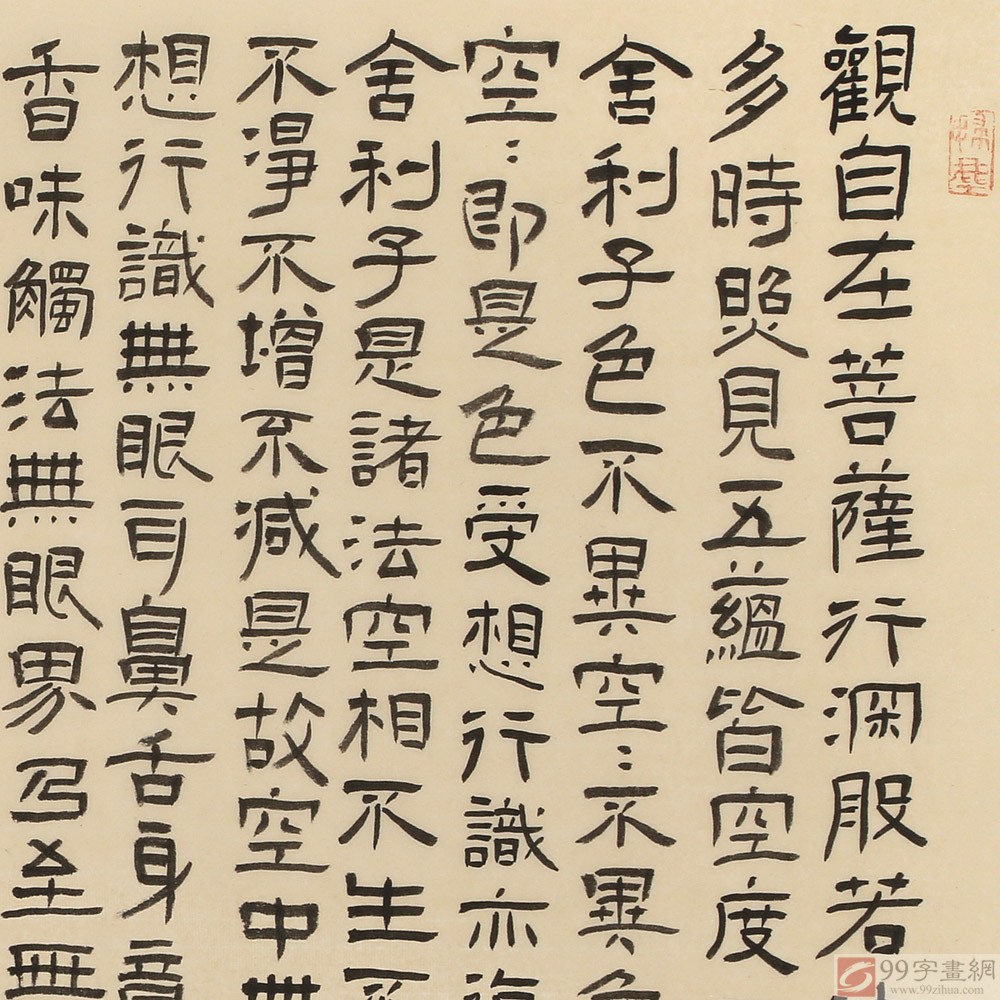 觀自在菩薩行深般若
多時照見五蘊皆空度
舍利子色不異空〻不異色
空〻即是色受想行識亦復
舍利子是諸法空相不生不
不淨不增不減是故空中無
想行識無眼耳鼻舌身意
香味觸法無眼界乃至無
99字畫網
www.99zihua.com